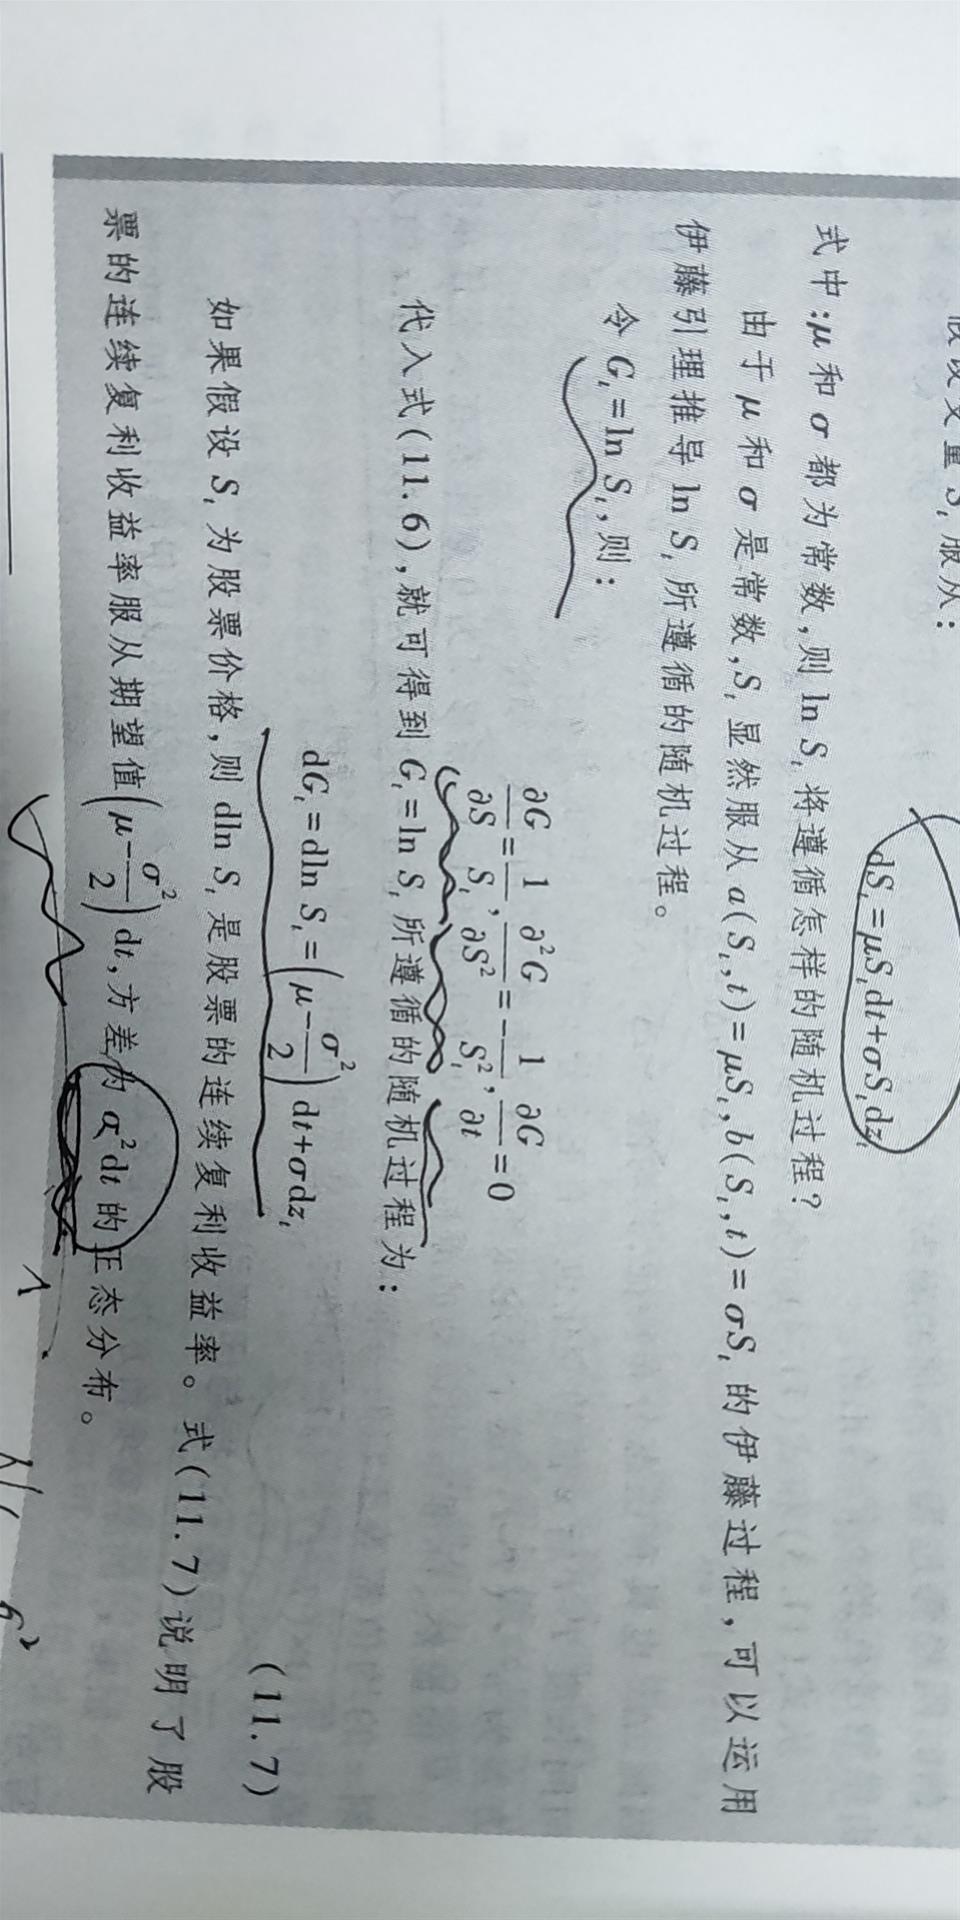 假设变量 Sₜ 服从：
dSₜ=μSₜdt+σSₜdzₜ
式中：μ 和 σ 都为常数，则 ln Sₜ 将遵循怎样的随机过程？
由于 μ 和 σ 是常数，Sₜ 显然服从 a(Sₜ,t)=μSₜ，b(Sₜ,t)=σSₜ 的伊藤过程，可以运用
伊藤引理推导 ln Sₜ 所遵循的随机过程。
令 Gₜ=ln Sₜ，则：
∂G/∂S=1/Sₜ，∂²G/∂S²=-1/Sₜ²，∂G/∂t=0
代入式(11.6)，就可得到 Gₜ=ln Sₜ 所遵循的随机过程为：
dGₜ=dln Sₜ=(μ-σ²/2)dt+σdzₜ
(11.7)
如果假设 Sₜ 为股票价格，则 dln Sₜ 是股票的连续复利收益率。式(11.7)说明了股
票的连续复利收益率服从期望值(μ-σ²/2)dt，方差为 σ²dt 的正态分布。